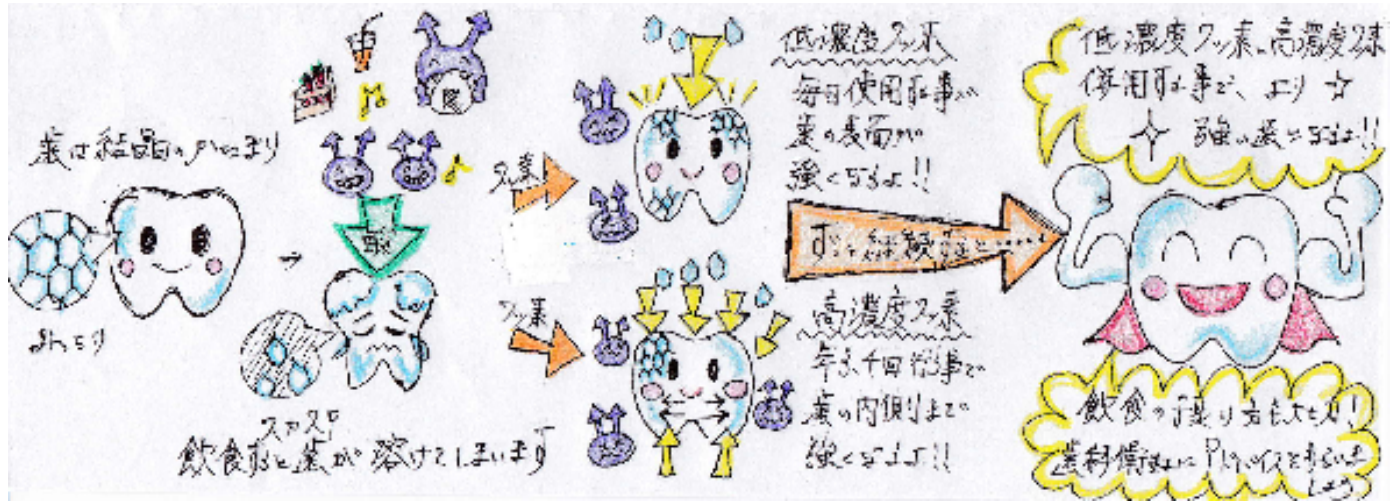 歯は結晶のかたまり
みっちり
菌
酸
スカスカ
飲食すると歯が溶けてしまいます
フッ素
フッ素
低濃度フッ素
毎日使用する事で
歯の表面が
強くなるよ!!
高濃度フッ素
年3、4回行う事で
歯の内側まで
強くなるよ!!
ずっと続けると……
低濃度フッ素、高濃度フッ素
併用する事で、より
強い歯になるよ!!
飲食の摂り方も大切!
歯科衛生士にアドバイスをもらいま
しょう